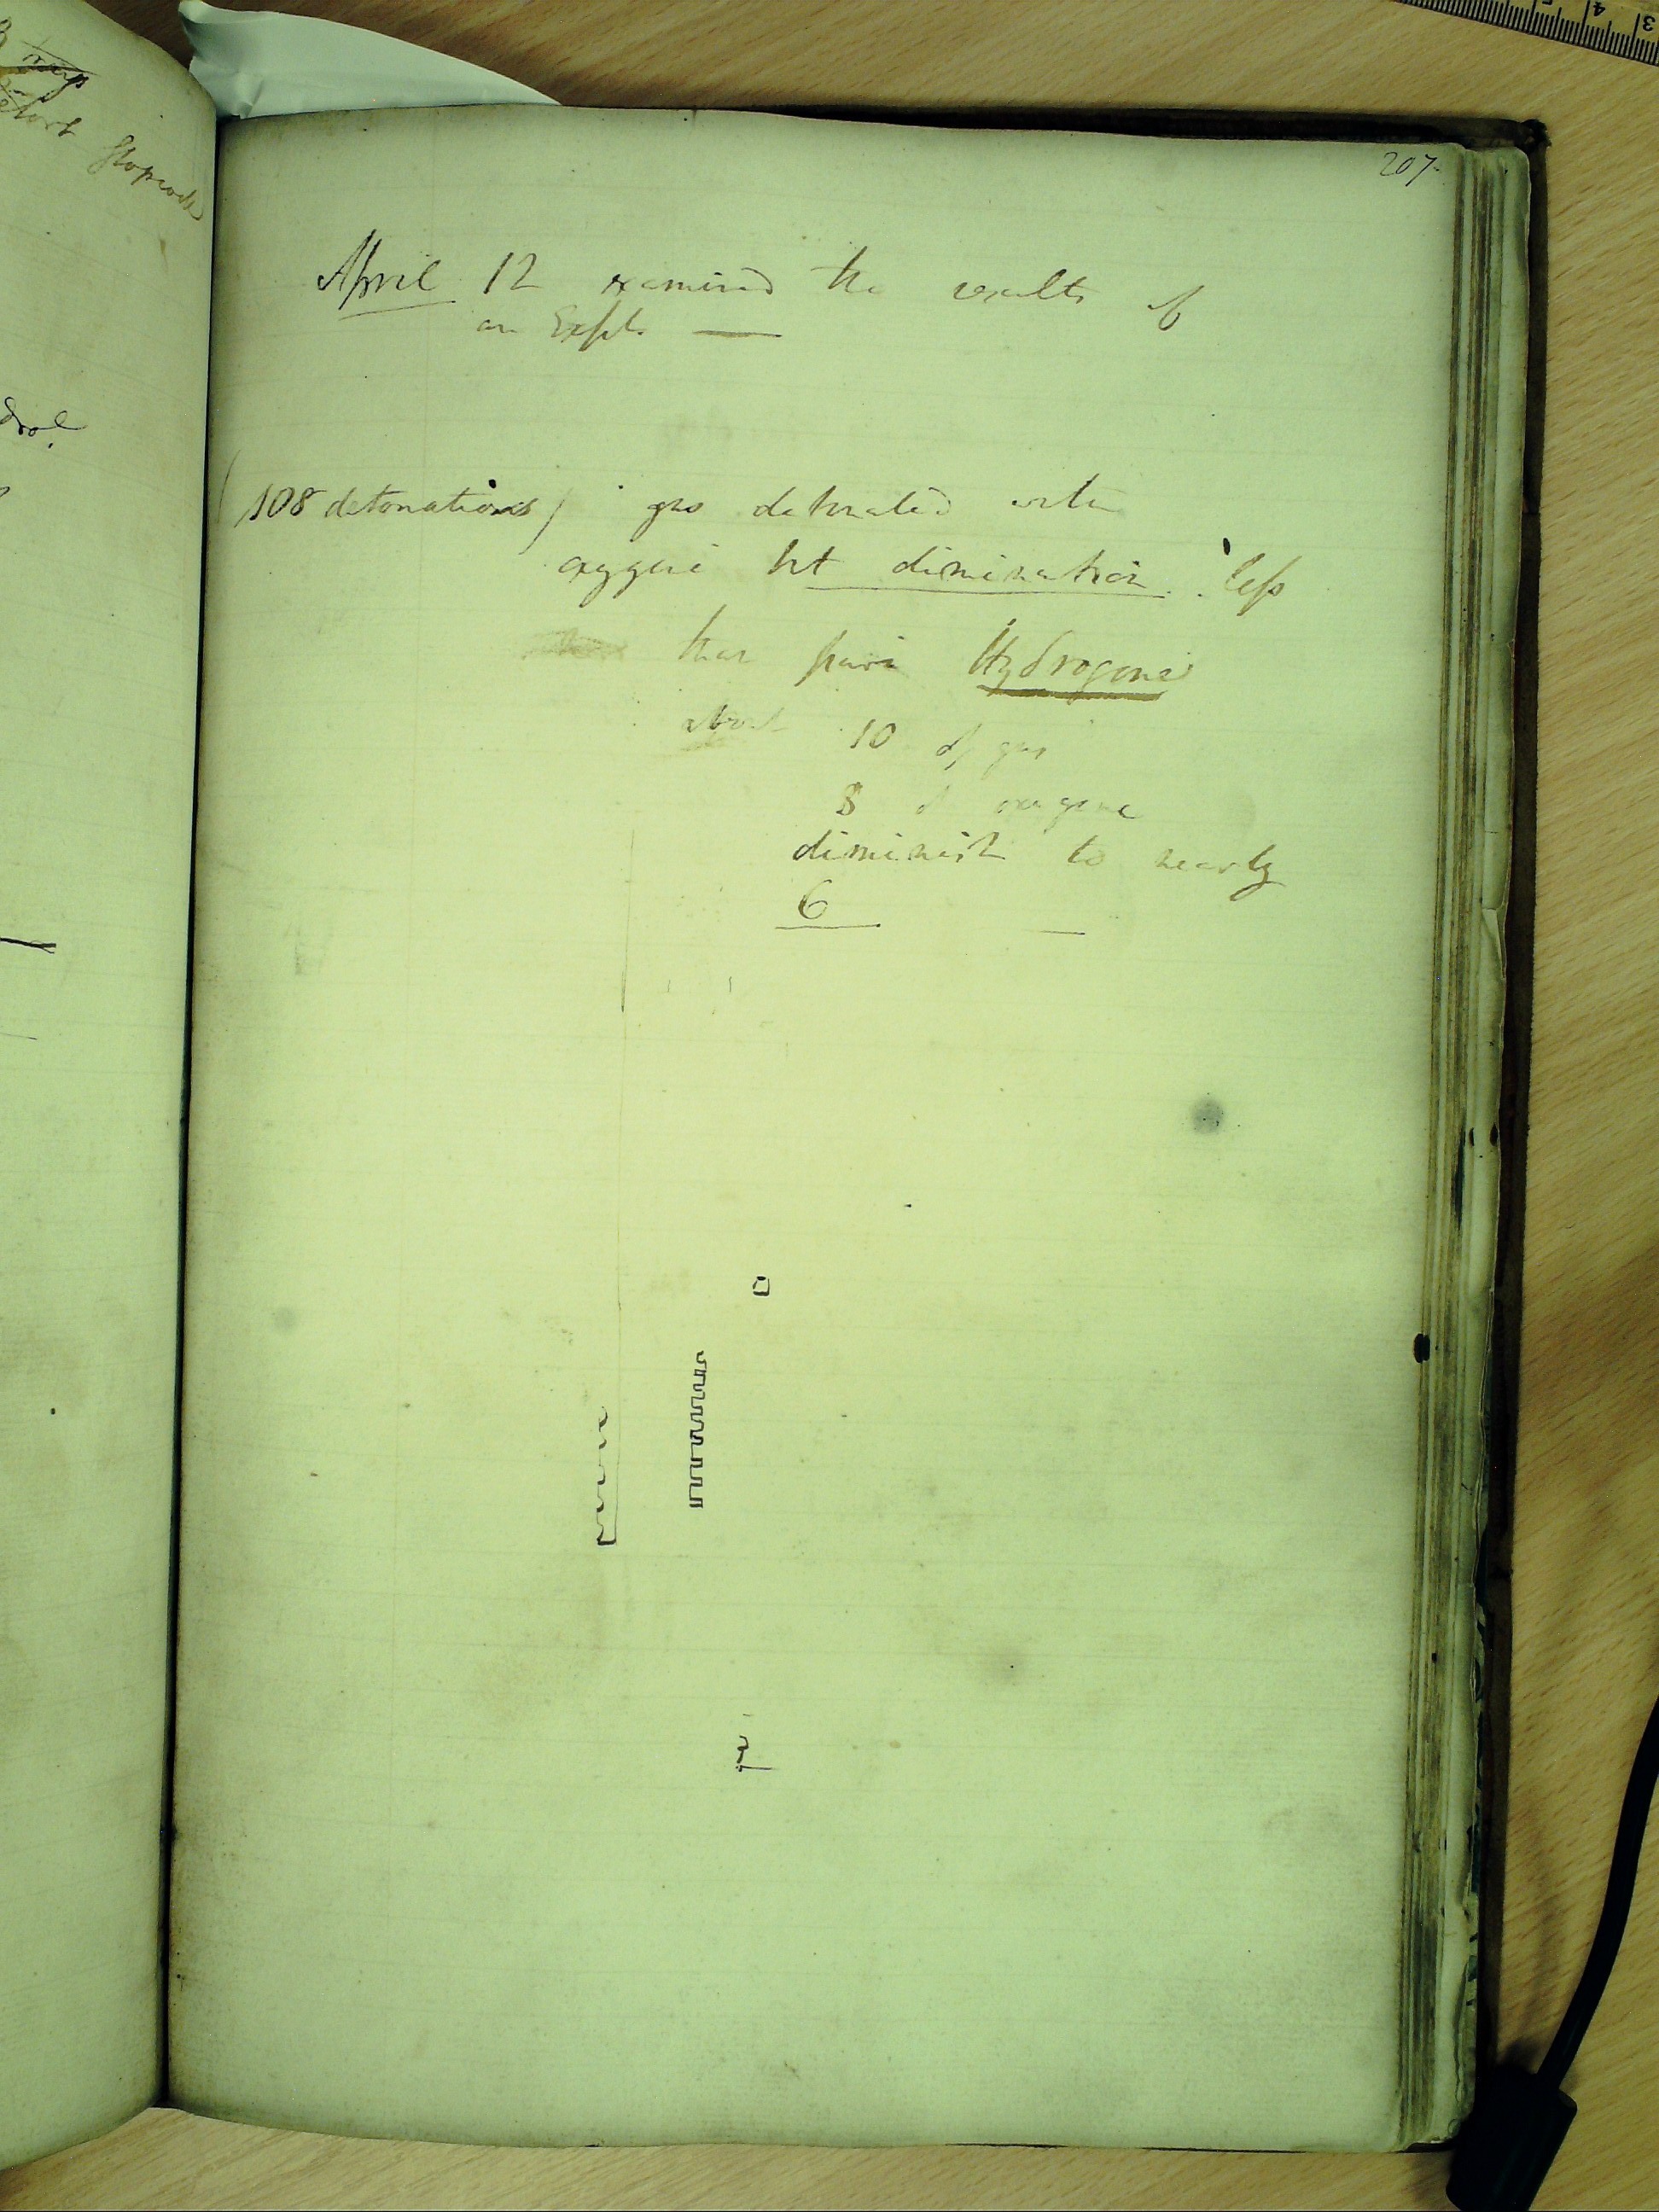 207
April 12 examined the results of
an Expt. —
(108 detonations) gas detonated with
oxygene but diminution less
than pure Hydrogene
about 10 of gas
8 of oxygene
diminish to nearly
6
stopcock